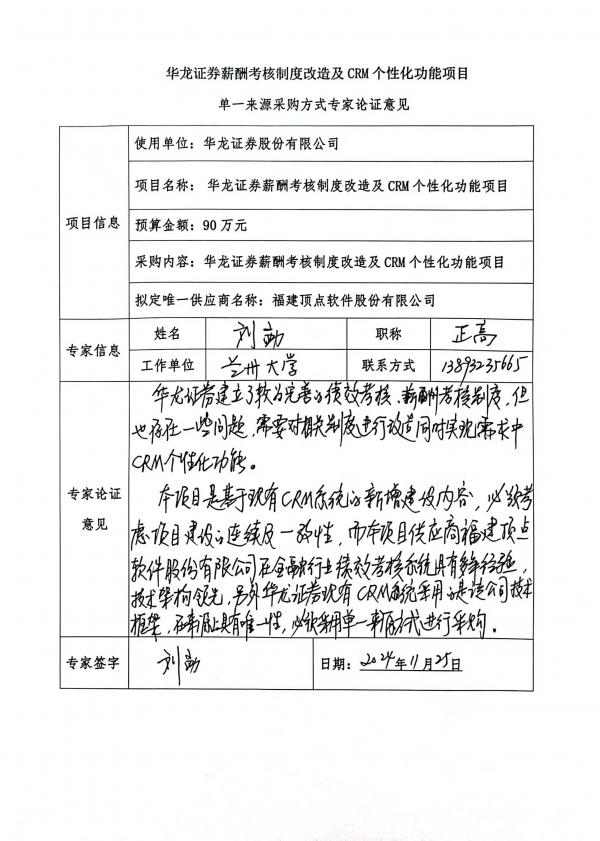 华龙证券薪酬考核制度改造及 CRM 个性化功能项目
单一来源采购方式专家论证意见
项目信息
使用单位：华龙证券股份有限公司
项目名称： 华龙证券薪酬考核制度改造及 CRM 个性化功能项目
预算金额：90 万元
采购内容：华龙证券薪酬考核制度改造及 CRM 个性化功能项目
拟定唯一供应商名称：福建顶点软件股份有限公司
专家信息
姓名 刘勍 职称 正高
工作单位 兰州大学 联系方式 13893235665
专家论证
意见
华龙证券建立了较为完善的绩效考核、薪酬考核制度，但
也存在一些问题，需要对相关制度进行改造同时实现需求中
CRM个性化功能。
本项目是基于现有CRM系统的新增建设内容，必须考
虑项目建设的连续及一致性，而本项目供应商福建顶点
软件股份有限公司在金融行业绩效考核系统具有多年经验，
技术架构领先，另外华龙证券现有CRM系统采用的是该公司技术
框架，在来源上具有唯一性，必须采用单一来源方式进行采购。
专家签字 刘勍 日期：2024年11月25日